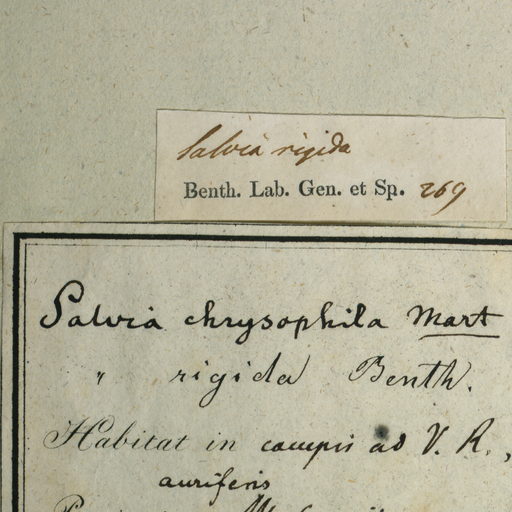 Salvia rigida
Benth. Lab. Gen. et Sp. 269
Salvia chrysophila Mart
" rigida Benth.
Habitat in campis ad V. R.,
auriferis